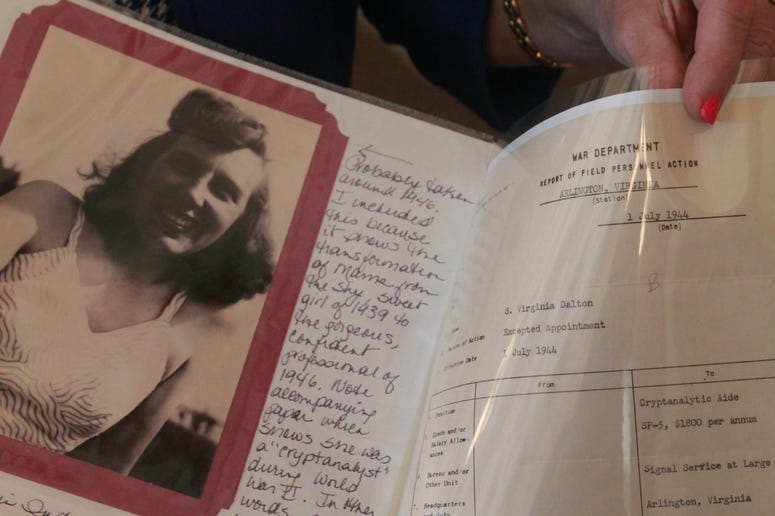 Probably taken
around 1946.
I included
this because
it shows the
transformation
of Mama from
the shy sweet
girl of 1939 to
the gorgeous,
confident
professional of
1946. Note
accompanying
paper which
shows she was
a "cryptanalyst"
during World
War II. In other
words
WAR DEPARTMENT
REPORT OF FIELD PERSONNEL ACTION
ARLINGTON, VIRGINIA
(Station)
1 July 1944
(Date)
B
S. Virginia Dalton
of Action Excepted Appointment
Effective Date 1 July 1944
From To
Position Cryptanalytic Aide
Grade and/or SP-5, $1800 per annum
Salary Allow-
ances
Bureau and or Signal Service at Large
Other Unit
7. Headquarters Arlington, Virginia